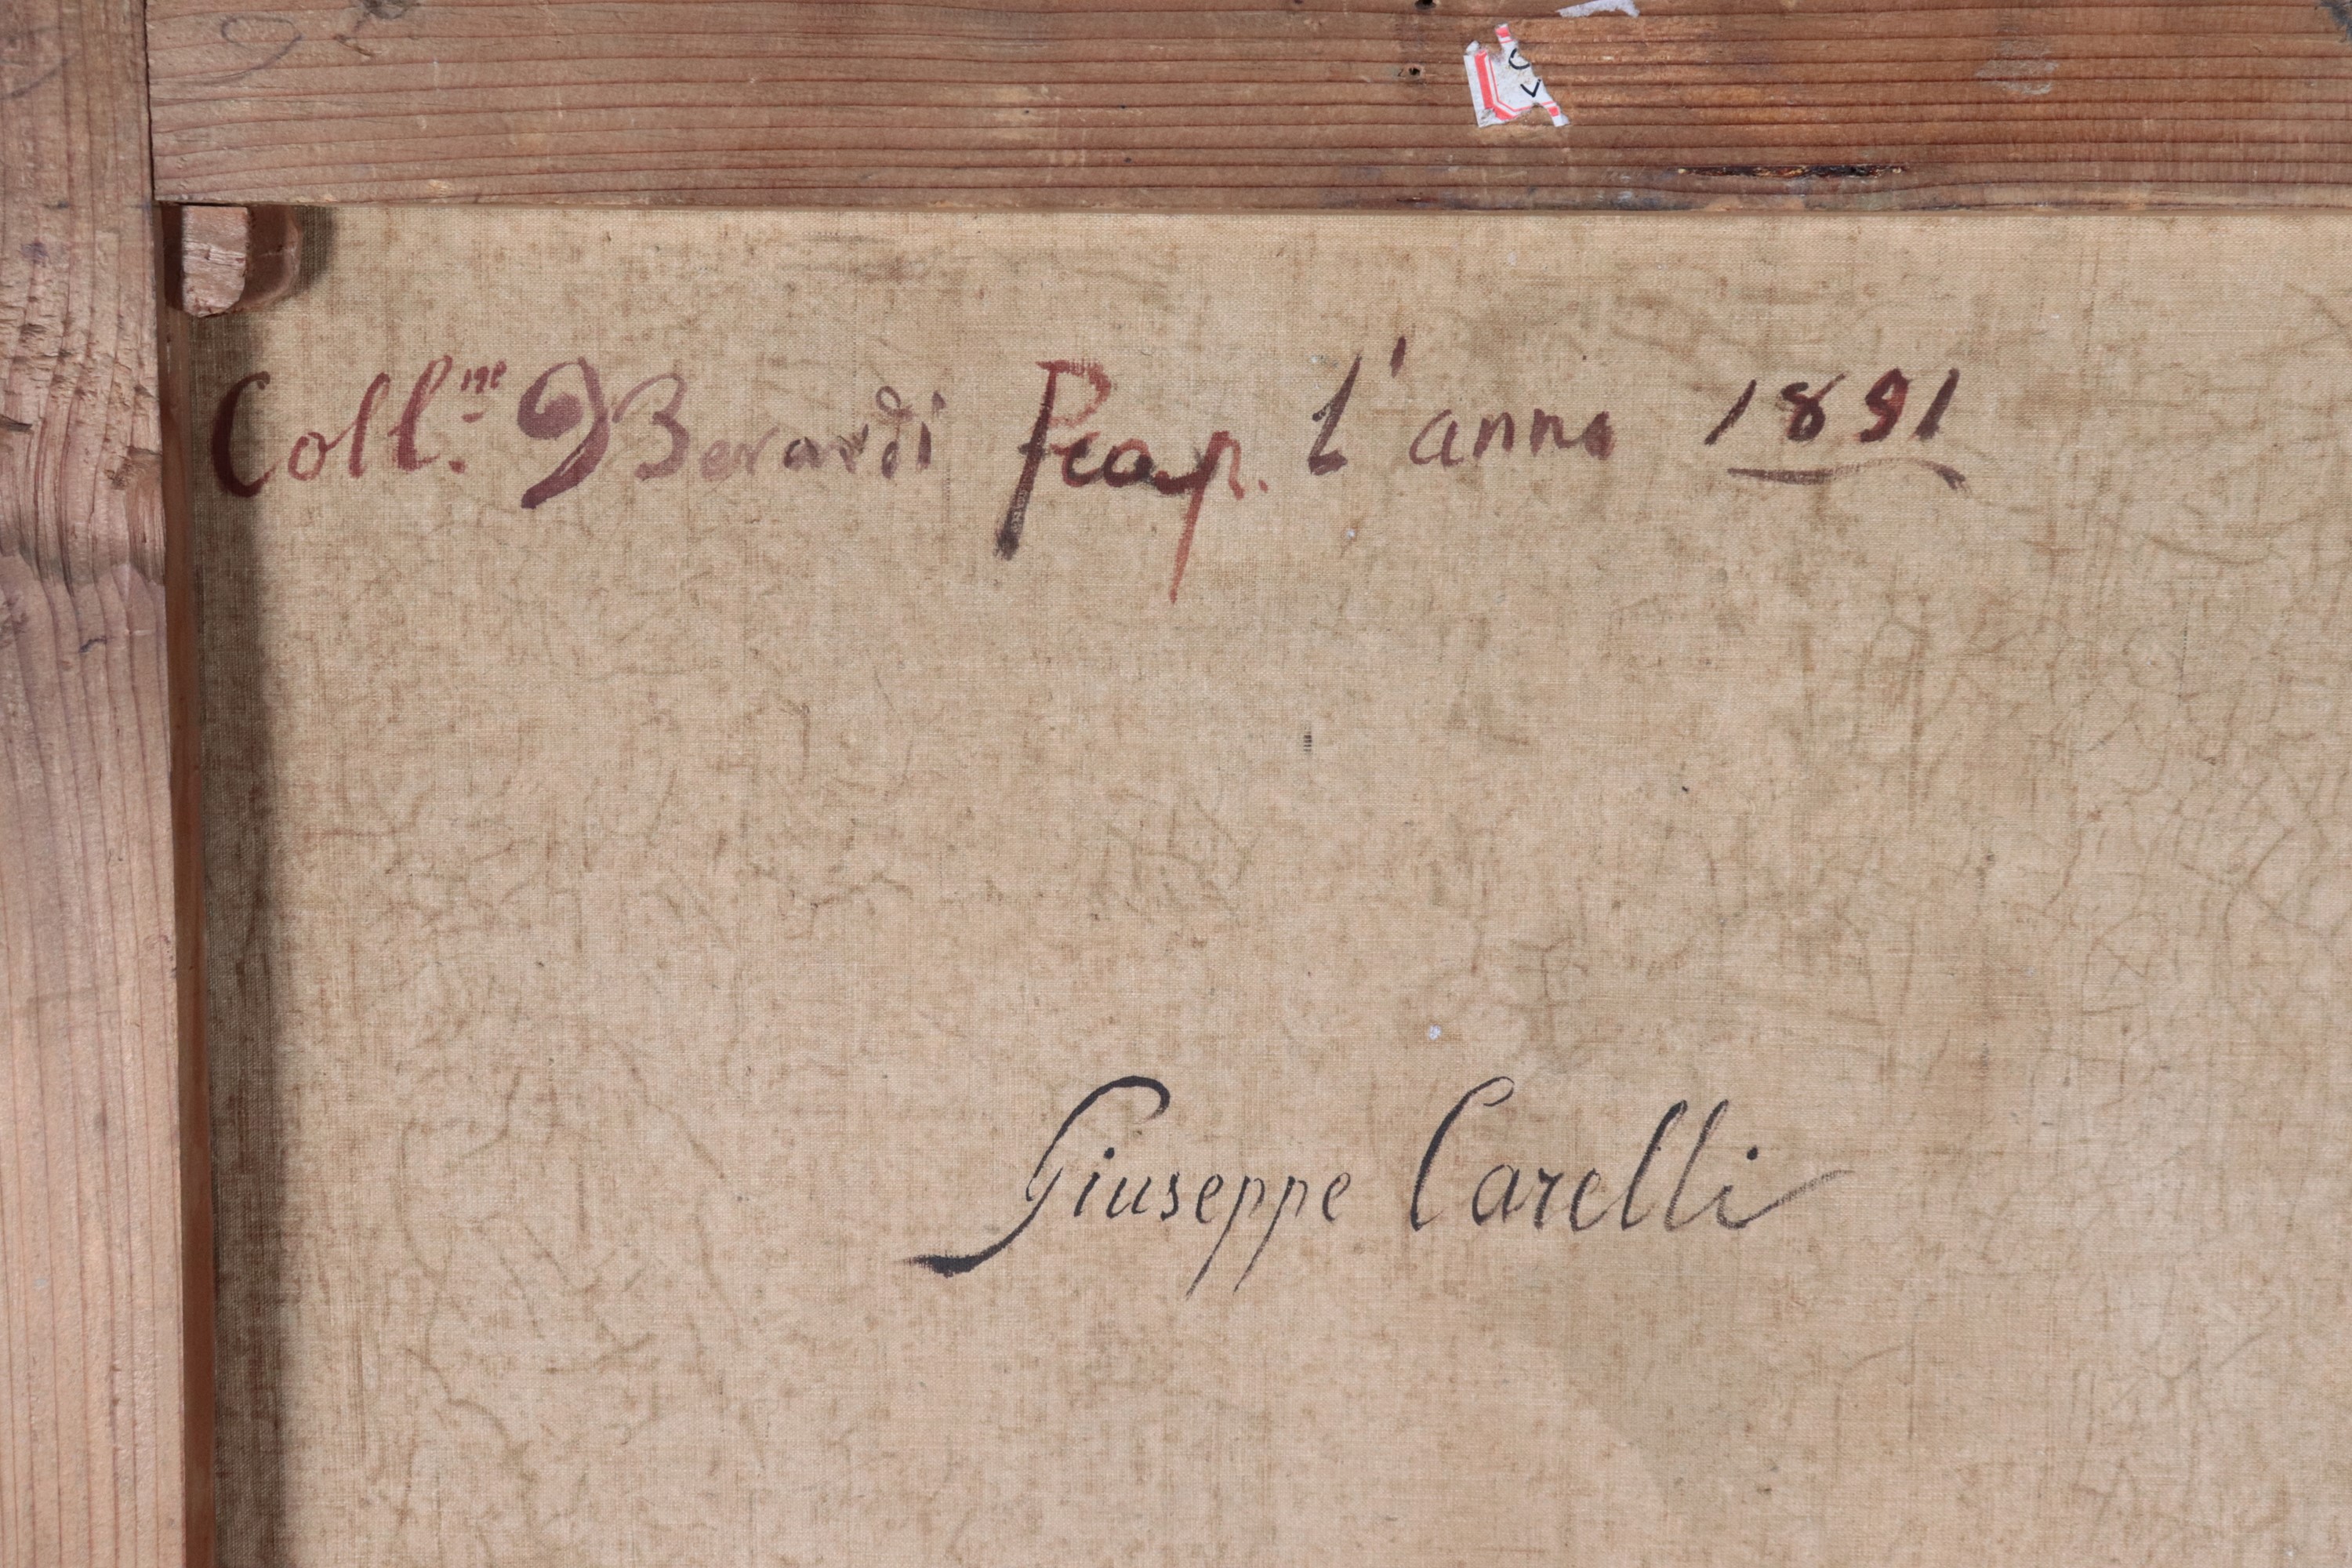 Coll.ne Berardi l'anno 1891
Giuseppe Carelli